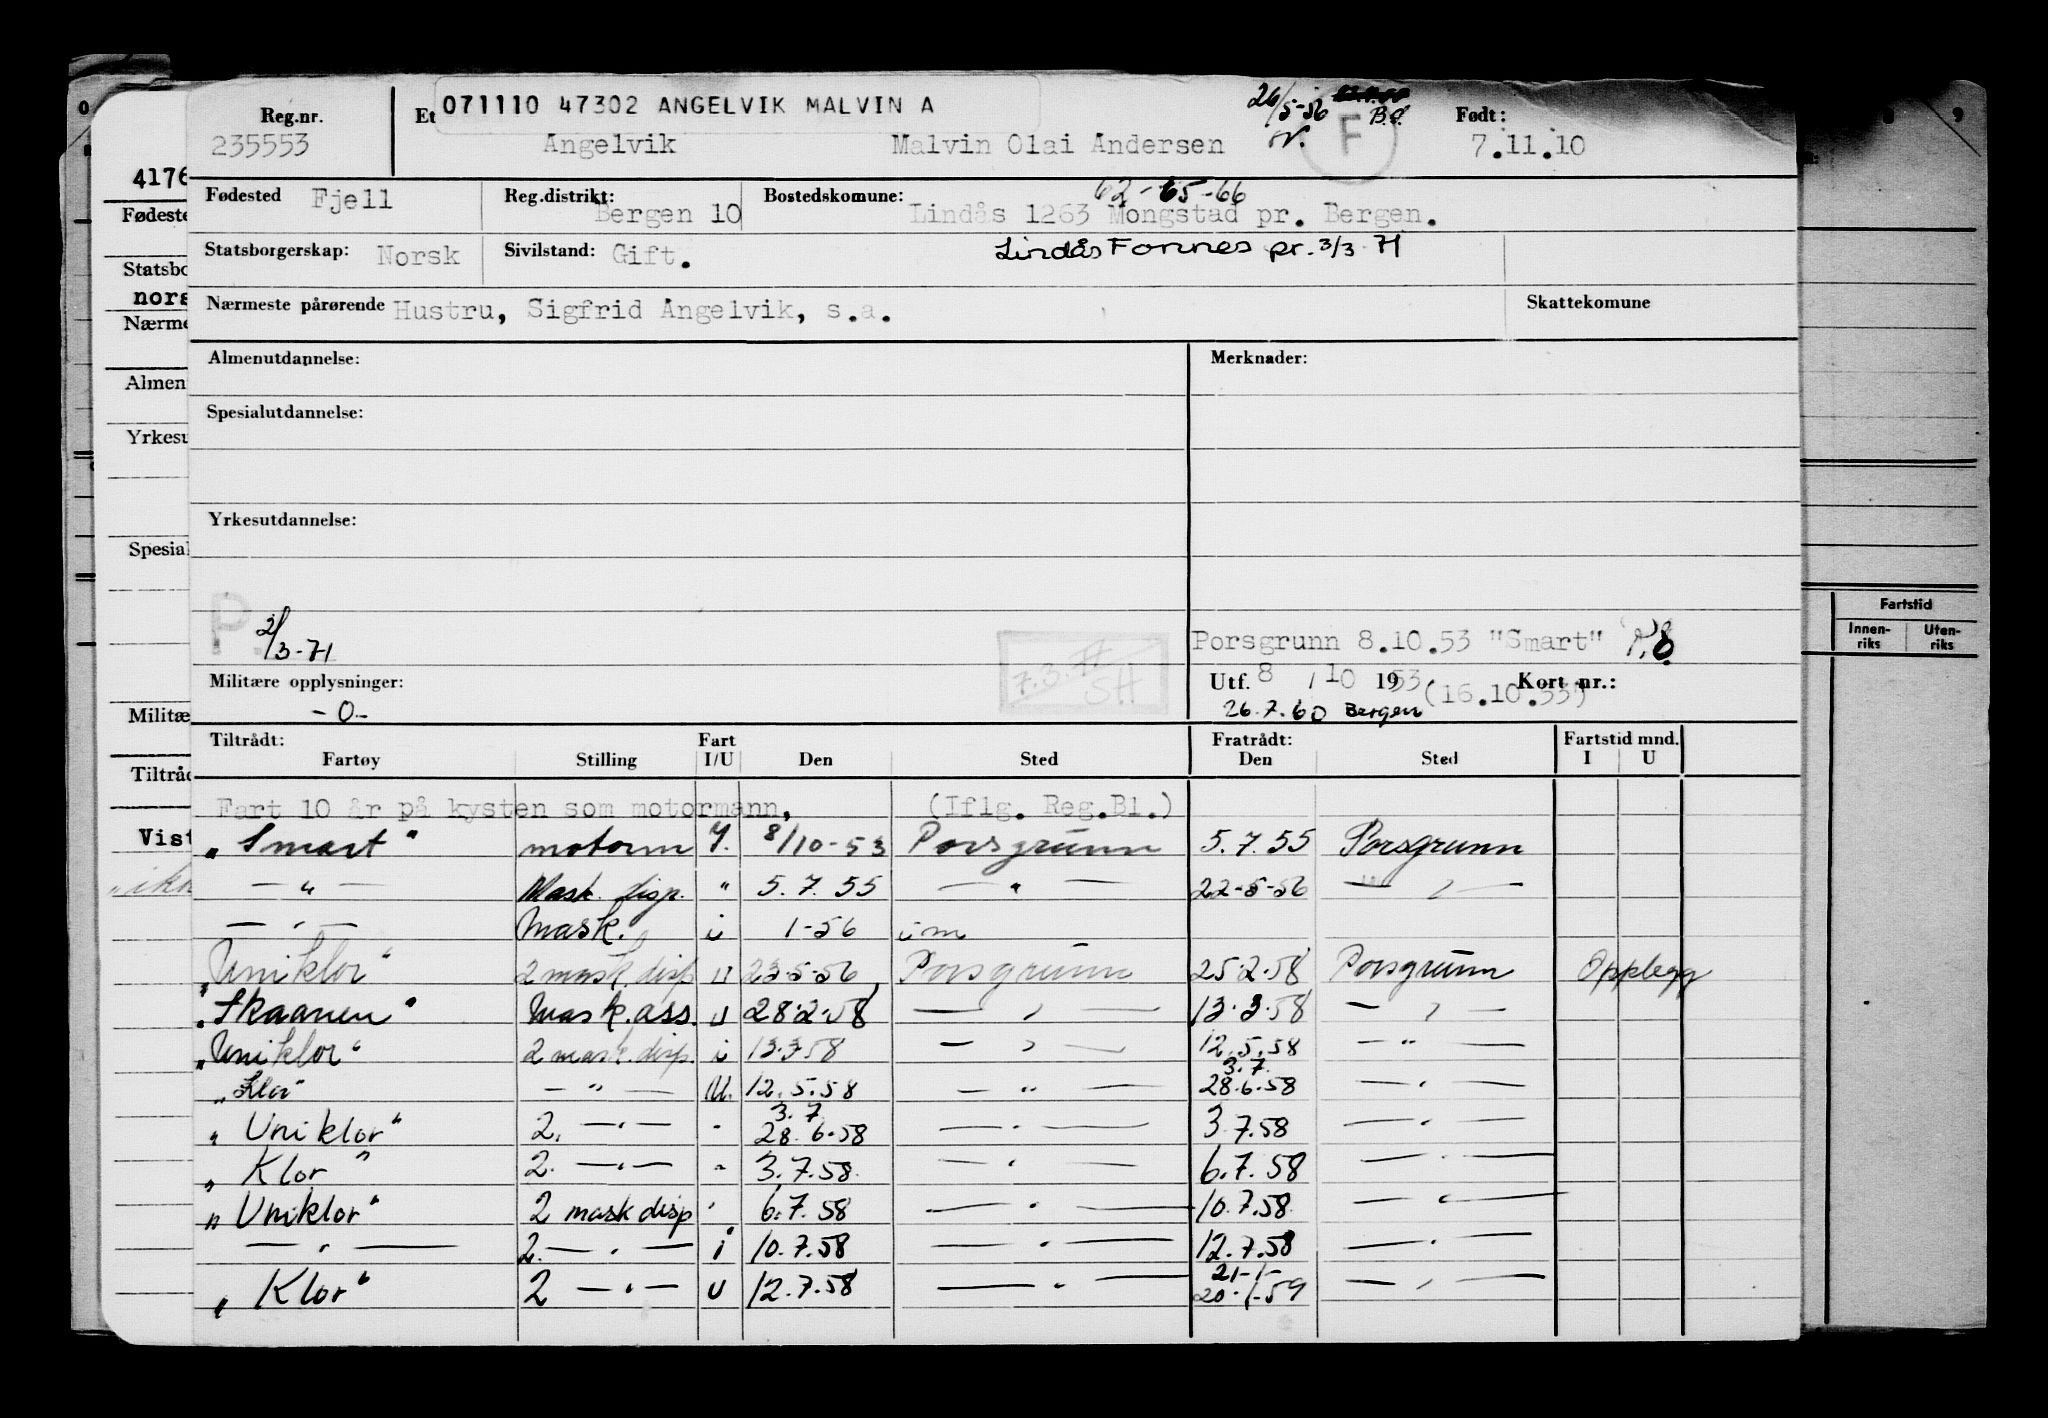 071110 47302 ANGELVIK MALVIN A
26/5-56 B.S.
Reg.nr. Et Født:
235553 Angelvik Malvin Olai Andersen F 7.11.10
62-65-66
Fødested Fjell Reg.distrikt: Bergen 10 Bostedskomune: Lindås 1263 Mongstad pr. Bergen.
Statsborgerskap: Norsk Sivilstand: Gift. Lindås Fonnes pr. 3/3 71
Nærmeste pårørende Hustru, Sigfrid Angelvik, s.a. Skattekomune
Almenutdannelse: Merknader:
Spesialutdannelse:
Yrkesutdannelse:
P. 2/3-71
7.3.77 SH
Porsgrunn 8.10.53 "Smart"
Militære opplysninger: Utf. 8 / 10 1953 (16.10.53) Kort nr.:
-0- 26.7.60 Bergen
Tiltrådt: Fart Fratrådt: Fartstid mnd.
Fartøy Stilling I/U Den Sted Den Sted I U
Fart 10 år på kysten som motormann, (Iflg. Reg.Bl.)
"Smart" motorm I. 8/10-53 Porsgrunn 5.7.55 Porsgrunn
— " — Mask. disp. " 5.7.55 — " — 22-5-56 — " —
— " — Mask. i 1-56 im
"Uniklor" 2 mask. disp U 23-5-56 Porsgrunn 25.2.58 Porsgrunn Opplegg
"Skaanen" Mask. ass. U 28.2.58 — " — 13.3.58 — " —
"Uniklor" 2 mask. disp. i 13.3.58 — " — 12.5.58 — " —
3.7.
"Klor" — " — U. 12.5.58 — " — 28.6.58 — " —
3.7
"Uniklor" 2. — " — " 28.6.58 — " — 3.7.58 — " —
"Klor" 2. — " — " 3.7.58. — " — 6.7.58 — " —
"Uniklor" 2 mask disp " 6.7.58 — " — 10.7.58. — " —
— " — 2. — " — i 10.7.58 — " — 12.7.58 — " —
21-1-
"Klor" 2 — " — U 12.7.58 — " — 20.1.59 — " —
4176
Fødeste
Statsbo
nors
Nærme
Almen
Yrkesu
Spesial
Militæ
Tiltråd
Vist
Fartstid
Innen-riks Uten-riks